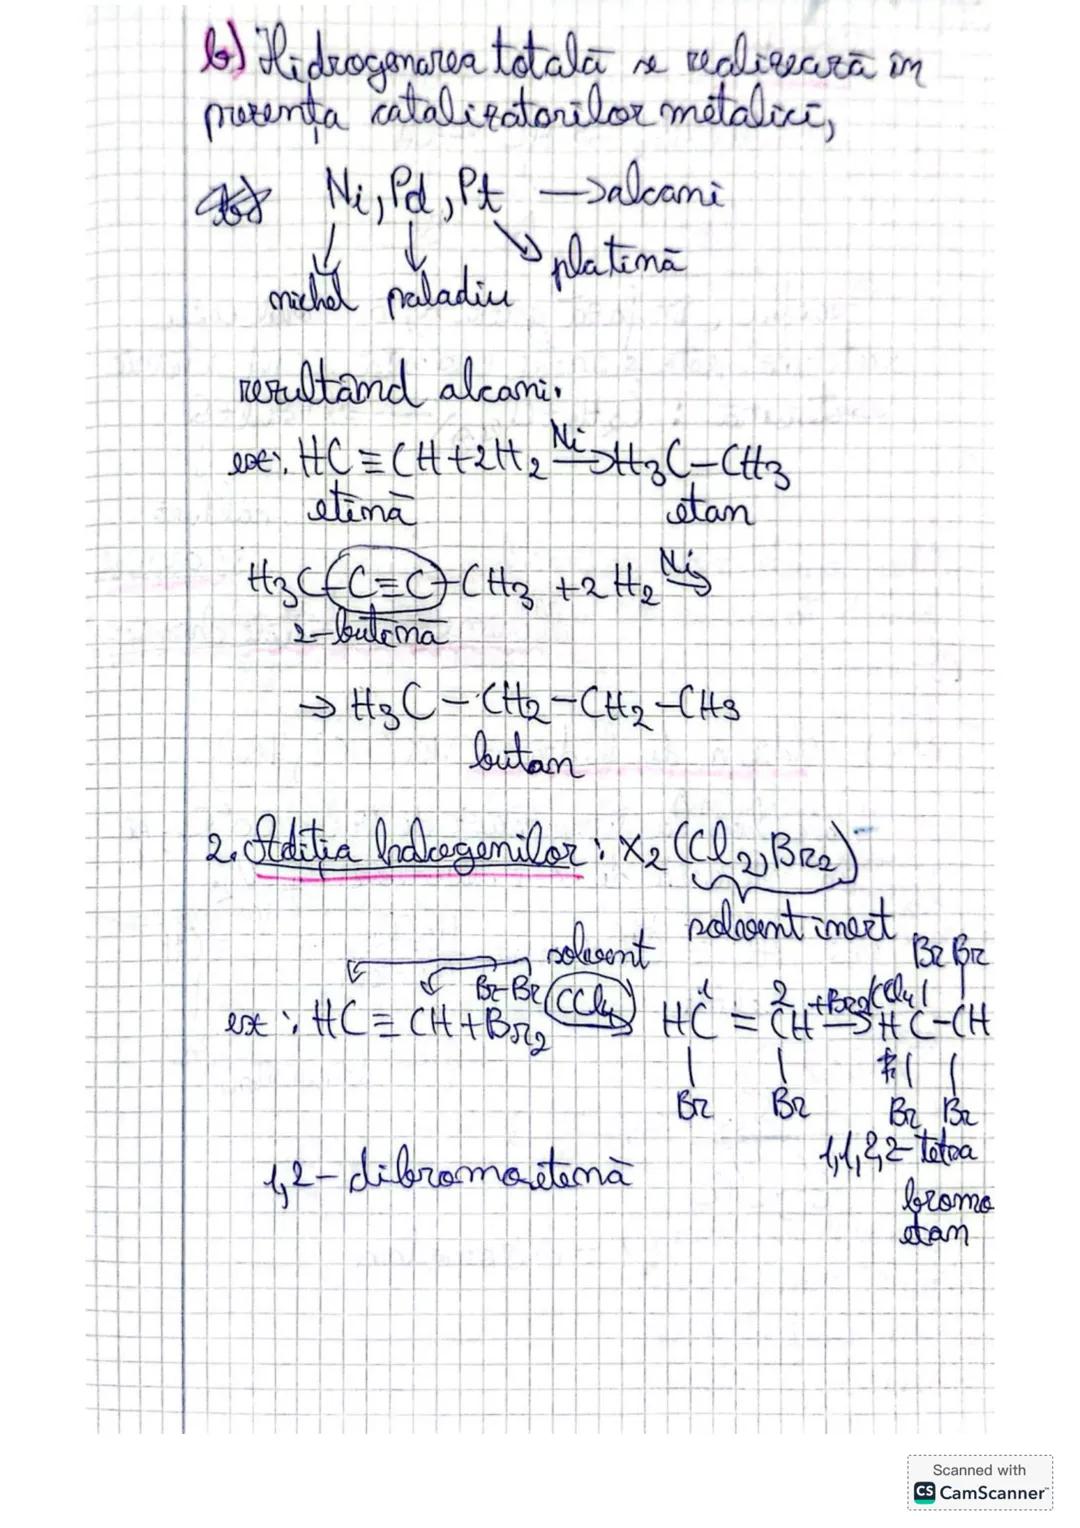 b) Hidrogenarea totală se realizează în
prezența catalizatorilor metalici,
Ni, Pd, Pt → alcani
nichel paladiu platină
rezultând alcani.
ex: HC ≡ CH + 2H2 Ni→ H3C – CH3
etină etan
H3C – C ≡ C – CH3 + 2H2 Ni→
2-butină
→ H3C – CH2 – CH2 – CH3
butan
2. Adiția halogenilor: X2 (Cl2, Br2)
solvent inert
solvent Br Br
Br-Br CCl4 1 2 +Br2 CCl4
ex: HC ≡ CH + Br2 → HC = CH → HC – CH
Br Br Br Br
1,2 - dibromoetenă
1,1,2,2 - tetra
bromo
etan
Scanned with
CS CamScanner